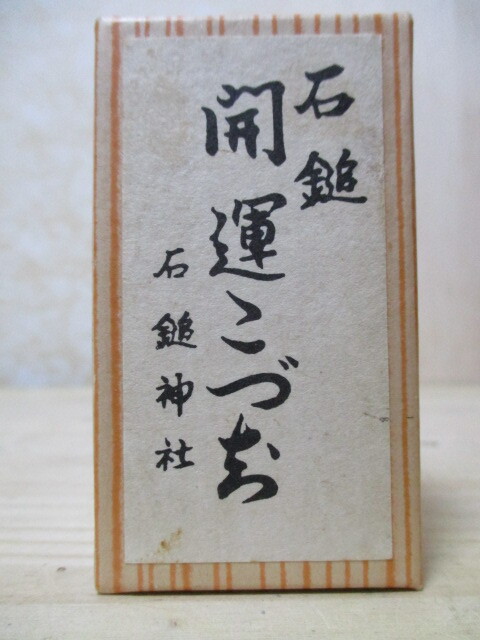 石鎚
開運こづち
石鎚神社